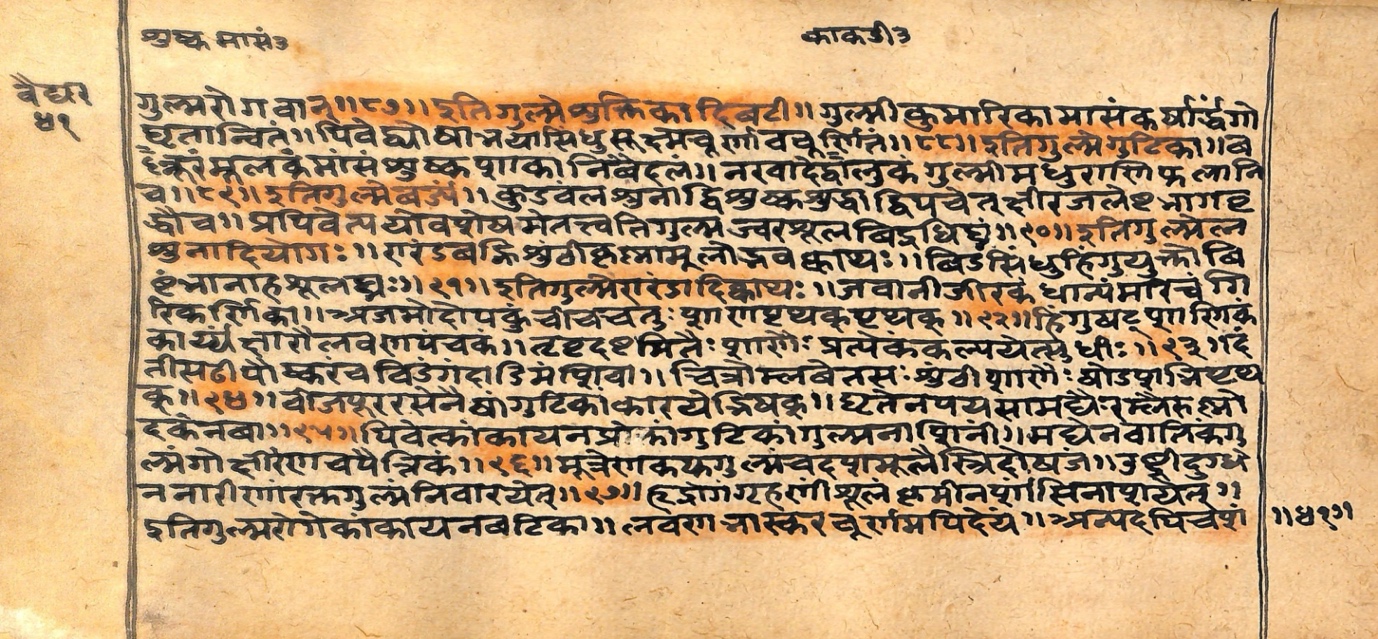 शुष्क मासं३
काकडी३
वैद्यर
४१
गुल्मरोगवान्॥८७॥इतिगुल्मेशुक्तिकादिवटी॥गुल्मीकुमारिकामासंकर्षार्द्धंगो
घृतान्वितं॥पिवेद्व्योषाभयासिंधुसूक्ष्मचूर्णावचूर्णितं॥८८॥इतिगुल्मेगुटिका॥व
मूलकं मांसं शुष्कशाकानिवैदलं॥नखादेद्वालुकं गुल्मीमधुराणिफलानि
च॥८९॥इतिगुल्मेवर्ज्यं॥कुडवलशुनाद्विशुष्कशुद्धाद्विपचेत्क्षीरजलेष्टभागष्ट
द्धौच॥प्रपिवेत्पयोवशेषमेतत्त्वतिगुल्मज्वरशूलविद्रधिघ्नं॥९०॥इतिगुल्मेल
शुनादियोगः॥एरंडवह्निशुंठीकृष्णामूलोद्भवक्वाथः॥विडसिंधुहिंगुयुक्तोवि
ष्टंभानाहशूलघ्नः॥९१॥इतिगुल्मेएरंडादिक्वाथः॥जवानीजीरकंधान्यंमरिचंगि
रिकर्णिका॥अजमोदोपकुंचीचचतुःशाणपृथक्पृथक्॥९२॥हिंगुषट्शाणिकं
कार्य्यंक्षारौलवणपंचकं॥तृवृदष्टमितैःशाणैःप्रत्येकंकल्पयेत्सुधीः॥९३॥दं
तीसठीपौष्करंचविडंगंदाडिमंशिवा॥चित्रोम्लवेतसःशुंठीशाणैःषोडशभिःपृथ
क्॥९४॥वीजपूररसेनैषांगुटिकांकारयेद्भिषक्॥घृतेनपयसामद्यैरम्लैरुष्णो
दकेनवा॥९५॥पिवेत्कांकायनप्रोक्तांगुटिकांगुल्मनाशिनीं॥मद्येनवातिकंगु
ल्मंगोक्षीरेणचपैत्तिकं॥९६॥मूत्रेणकफगुल्मंचदशमूलैस्त्रिदोषजं॥उष्ट्रीदुग्धे
ननारीणांरक्तगुल्मंनिवारयेत्॥९७॥हृद्रोगंगृहणींशूलंकृमीनर्शांसिनाशयेत्॥
इतिगुल्मरोगेकांकायनवटिका॥लवणभास्करचूर्णमपिदेयं॥अन्यदपिचेशां
॥४१॥